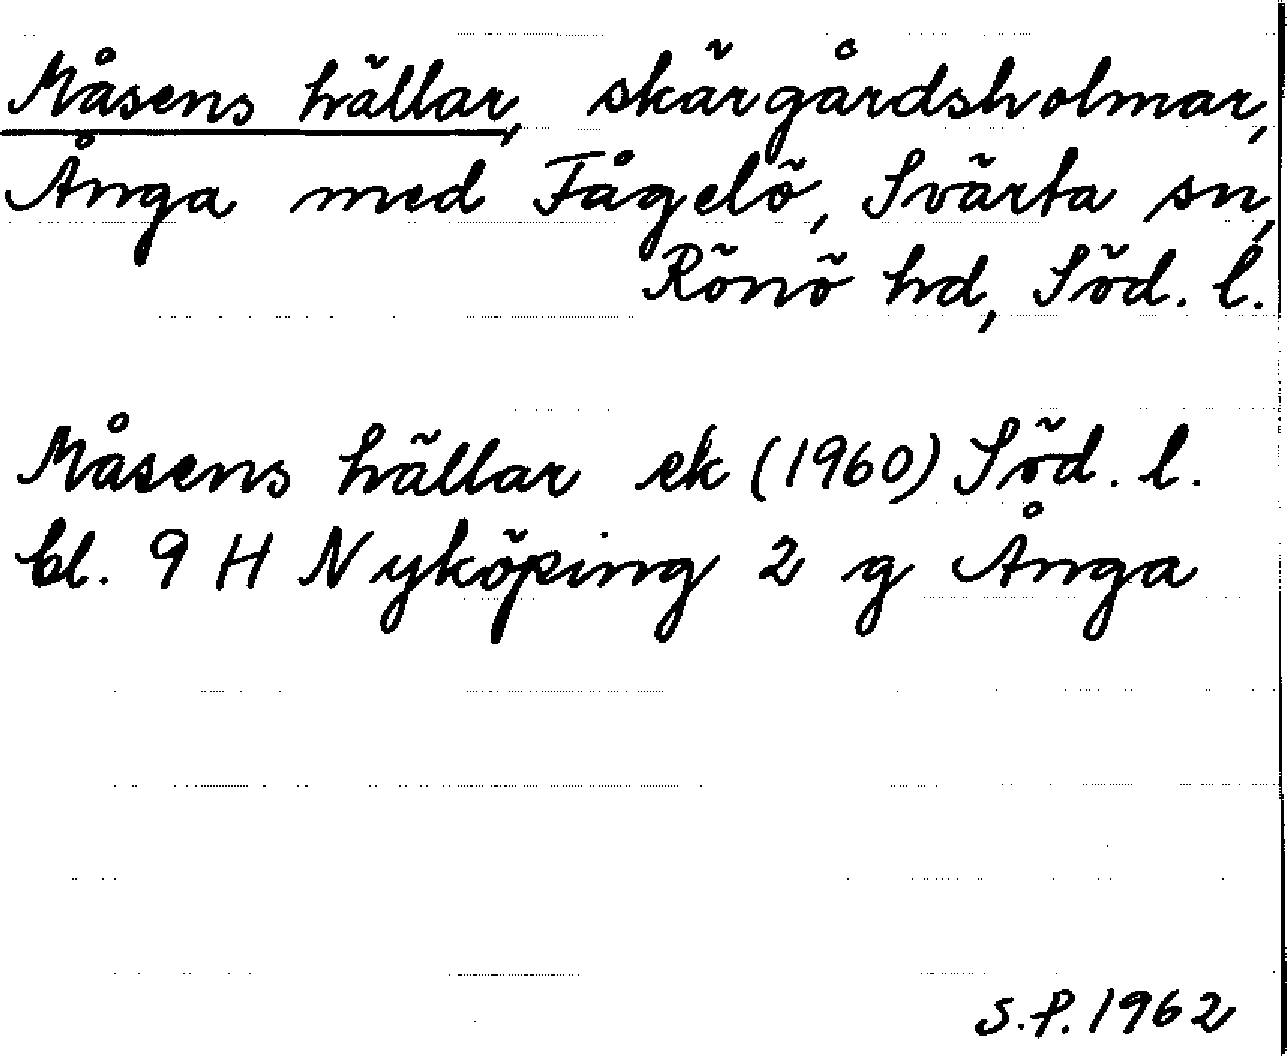 Måsens hällar, skärgårdsholmar,
Ånga med Fågelö, Svärta sn,
Rönö hd, Söd. l.
Måsens hällar ek (1960) Söd. l.
bl. 9 H Nyköping 2 g Ånga
S.P. 1962